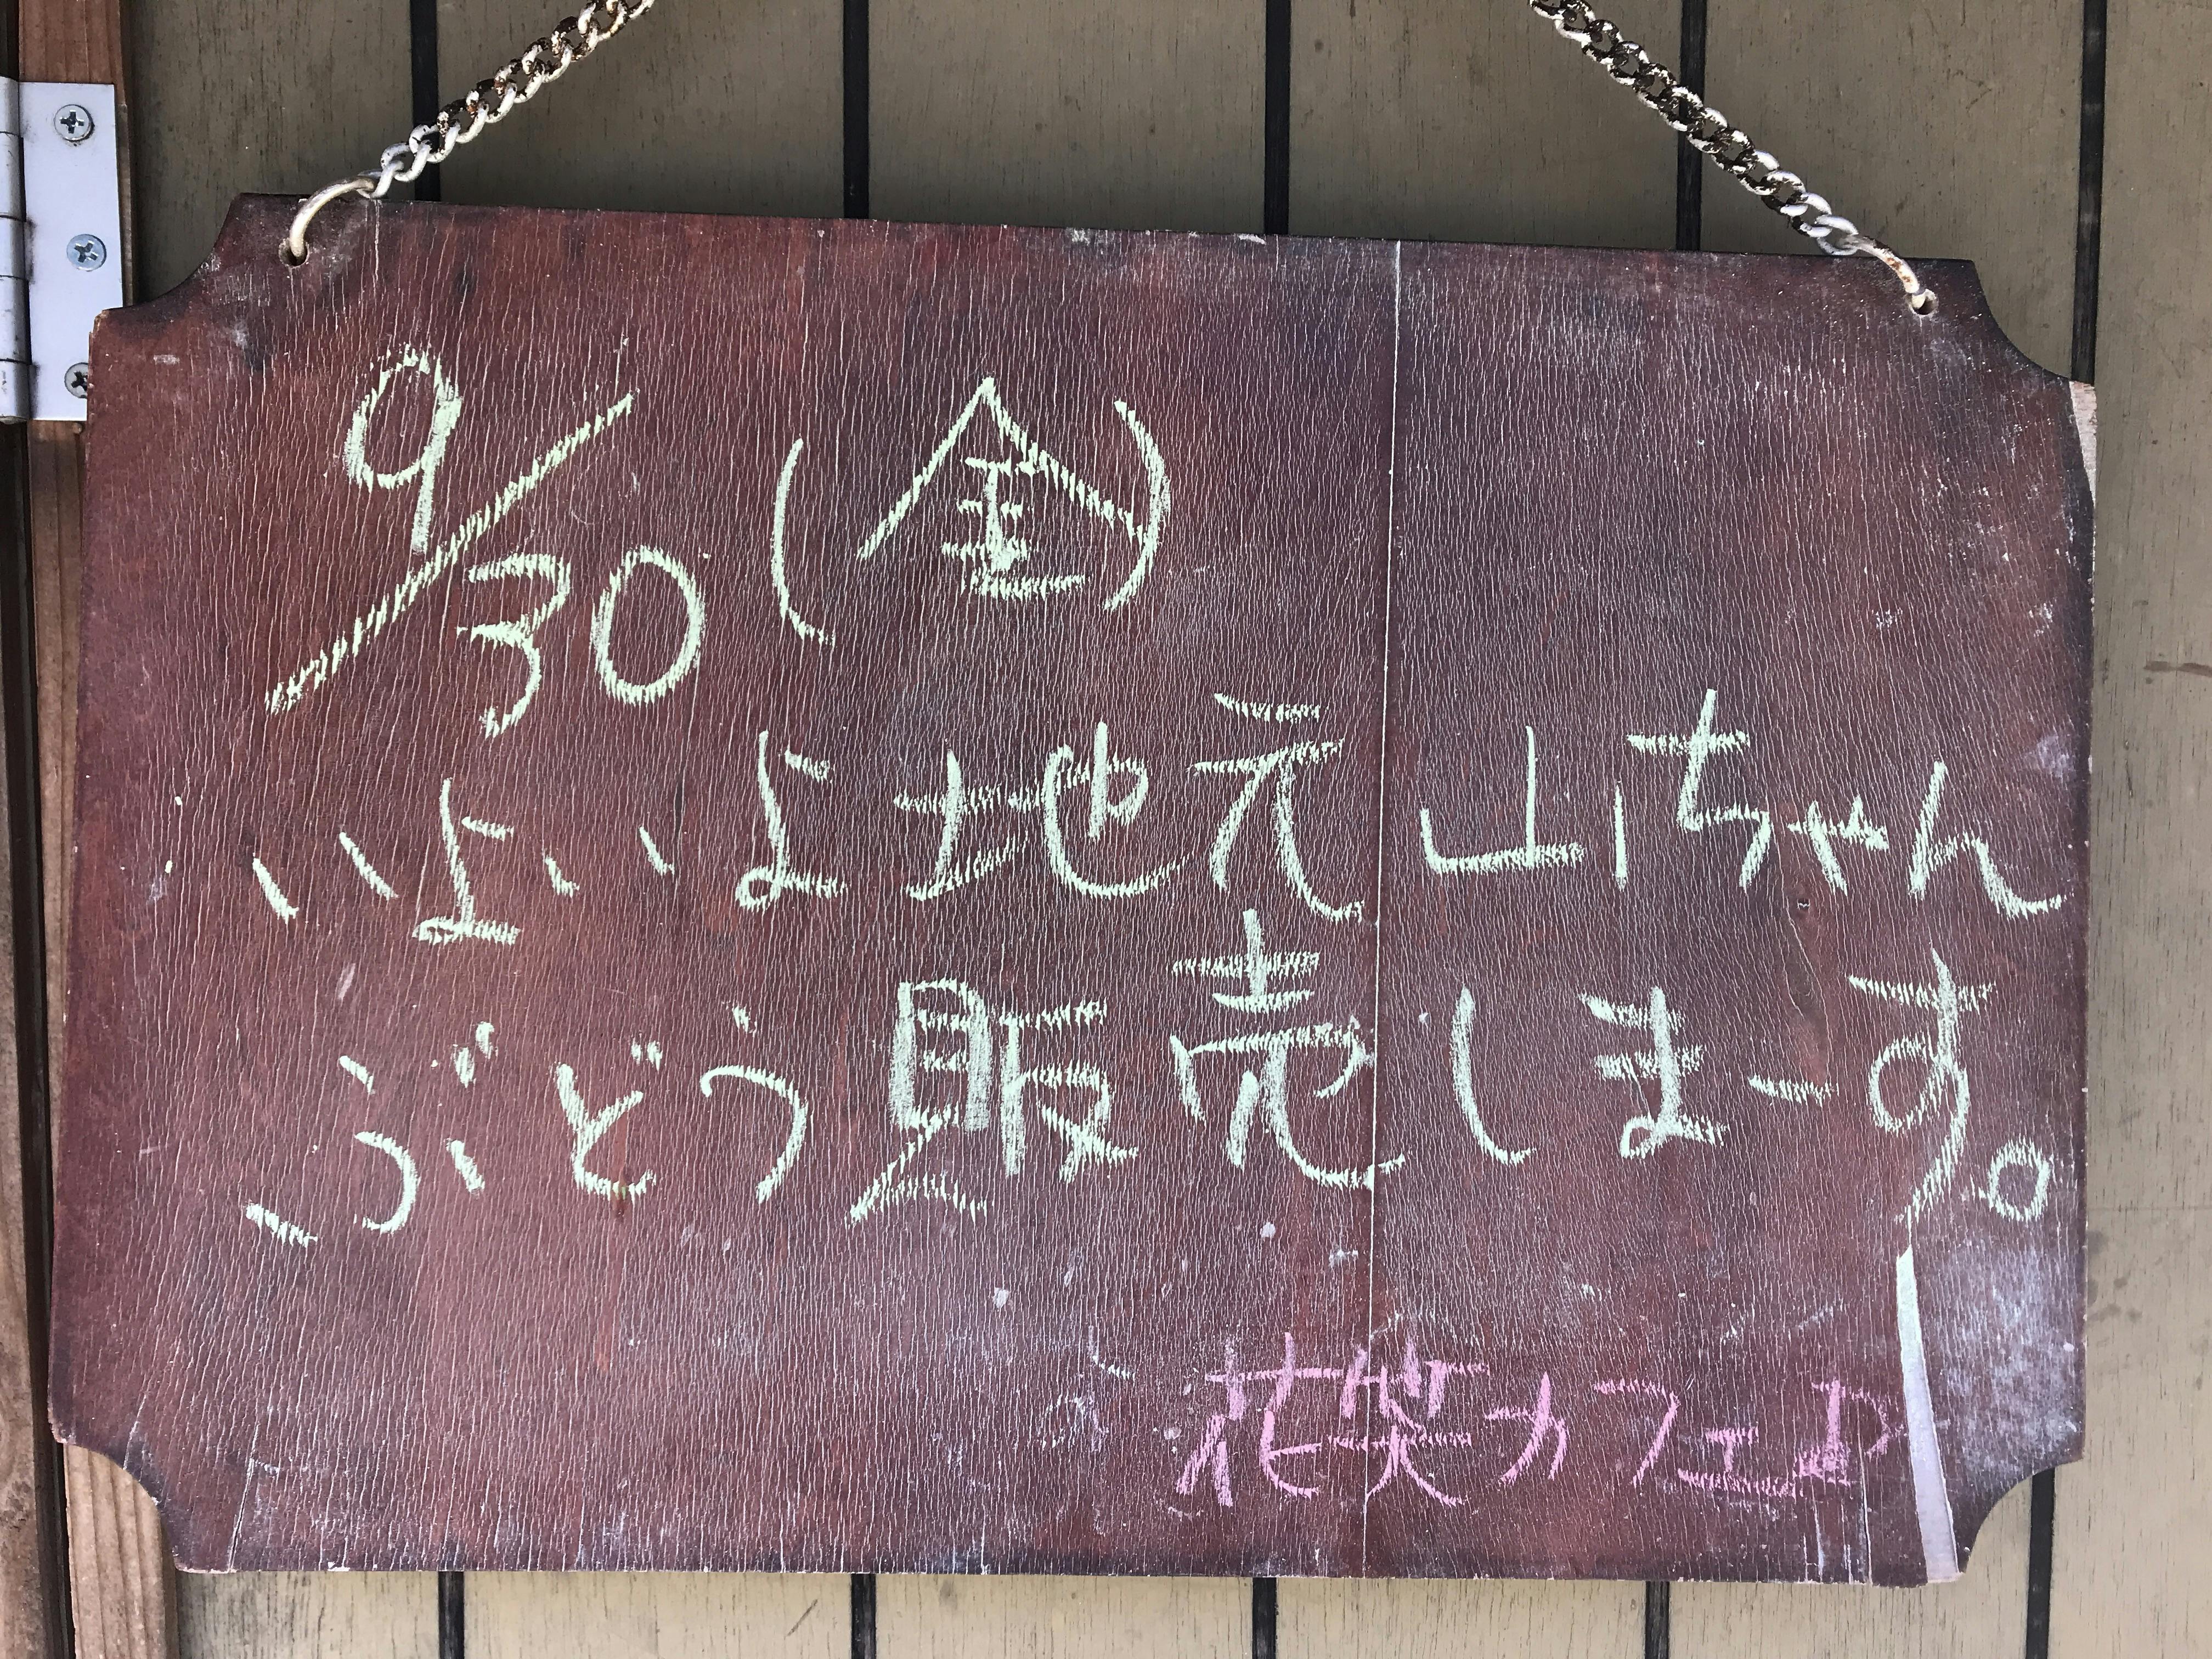 9/30(金)
いよいよ地元山ちゃん
ぶどう販売しまーす。
花笑カフェ